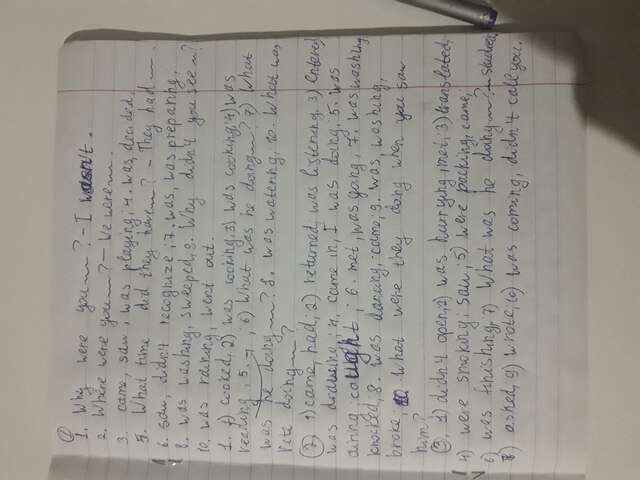 ①
1. Why were you ~ ? - I wasn't.
2. Where were you ~ ? - We were ~.
3. came, saw, was playing; 4. was, decided.
5. What time did they have ~ ? - They had ~.
6. saw, didn't recognize; 7. was, was preparing.
8. was washing, sweeped; 9. Why didn't you see ~ ?
10. was raining, went out.
1. 1) cooked, 2) was cooking; 3) was cooking; 4) was
reading; 5. 6) What was he doing ~ ? 7) What
was he doing ~ ? 8. was watering, 10. What was
Pete doing ~ ?
② 1) came, had; 2) returned, was listening. 3) Entered,
was drawing; 4. came in, I was doing; 5. was
caught; 6. met, was going, 7. was washing,
knocked, 8. was dancing, came; 9. was, washing,
broke; 10. What were they doing when you saw
him?
③ 1) didn't open; 2) was hurrying, met; 3) translated;
4) were smoking, saw; 5) were packing, came,
6) was finishing; 7) What was he doing ~ ?
8) asked, 9) wrote, 10) was coming, didn't call you.